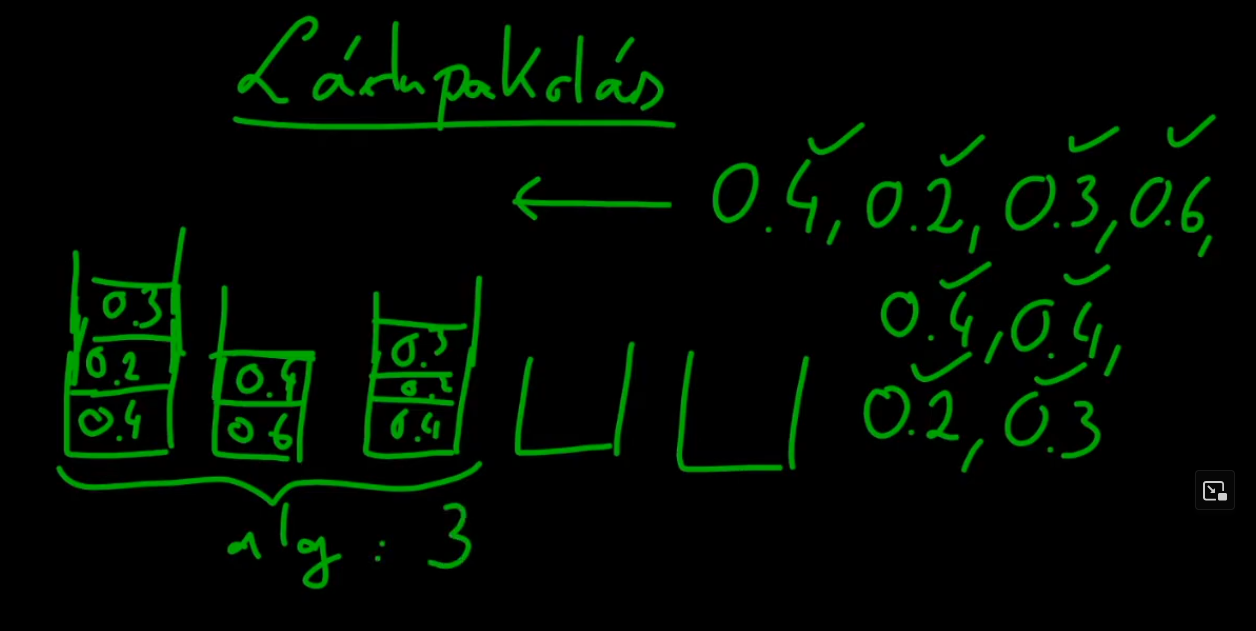 Ládapakolás
0.4, 0.2, 0.3, 0.6,
0.4, 0.4,
0.2, 0.3
0.3
0.2
0.4
0.4
0.6
0.3
0.2
0.4
alg: 3